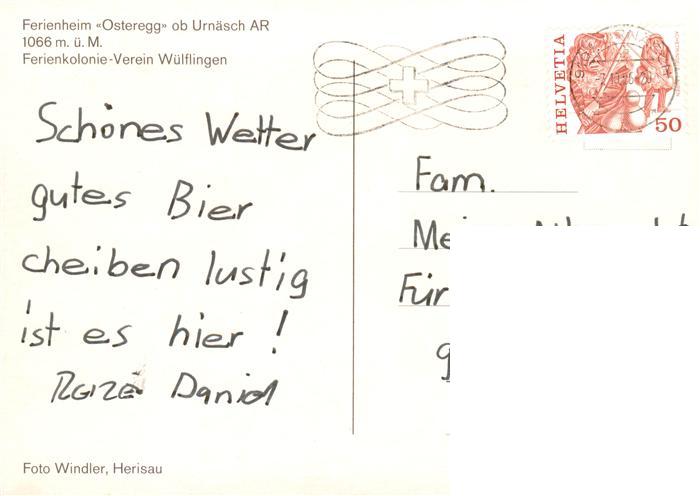 Ferienheim «Osteregg» ob Urnäsch AR
1066 m. ü. M.
Ferienkolonie-Verein Wülflingen
HELVETIA
50
Schönes Wetter
gutes Bier
cheiben lustig
ist es hier !
Daniel
Fam.
Für
Foto Windler, Herisau